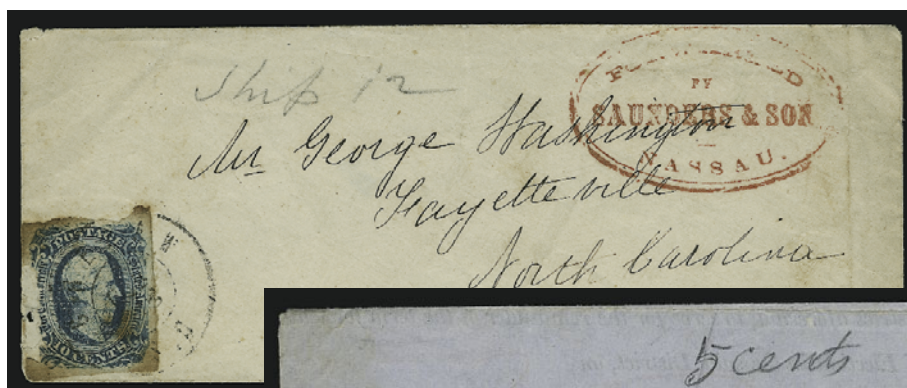 Ship 12
FORWARDED
BY
SAUNDERS & SON
NASSAU.
Mr George Washington
Fayetteville
North Carolina
POSTAGE
TEN CENTS
5 cents